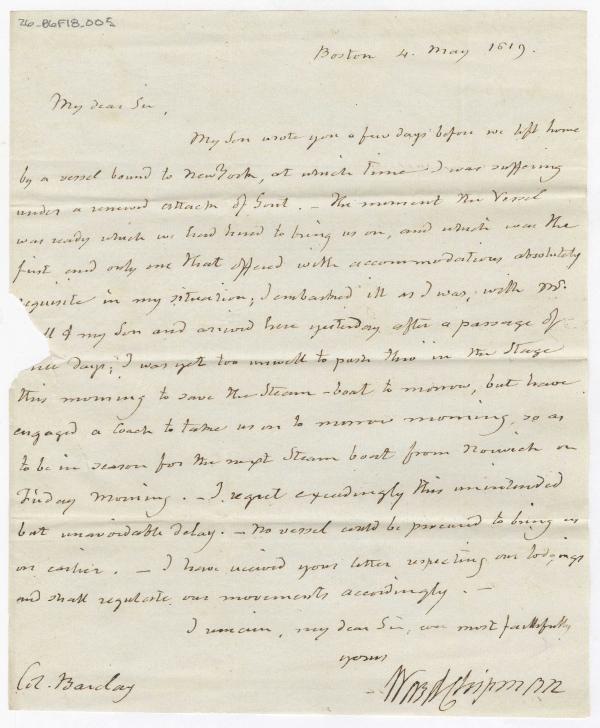 26-B6F18_005
Boston 4. May 1819.
My dear Sir,
My Son wrote you a few days before we left home
by a vessel bound to New York, at which time I was suffering
under a renewed attack of Gout. - The moment the Vessel
was ready which we had hired to bring us on, and which was the
first and only one that offered with accommodations absolutely
requisite in my situation, I embarked ill as I was, with Mr.
ll & my Son and arrived here yesterday after a passage of
days; I was yet too unwell to push thro' in the Stage
this morning to save the Steam-boat to morrow, but have
engaged a Coach to take us on to morrow morning, so as
to be in season for the next Steam boat from Norwich on
Friday morning. - I regret exceedingly this unintended
but unavoidable delay. - No vessel could be procured to bring us
on earlier. - I have received your letter respecting our lodgings
and shall regulate our movements accordingly. -
I remain, my dear Sir, ever most faithfully
yours
Ward Chipman
Col. Barclay